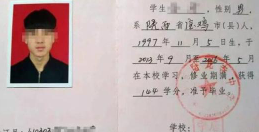 学生 性别 男
系 陕西 省 宝鸡 市(县)人,
1997 年 11 月 5 日生,于
2013 年 9 月 至 5 月
在本校学习,修业期满,获得
144 学分,准予毕业。
学校: